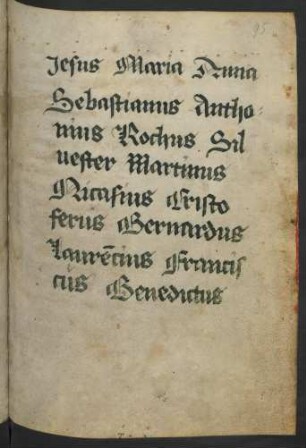 95
Jesus Maria Anna
Sebastianus Antho-
nius Rochus Sil
uester Martinus
Nicasius Cristo
ferus Bernardus
Laurẽcius Francis
cus Benedictus